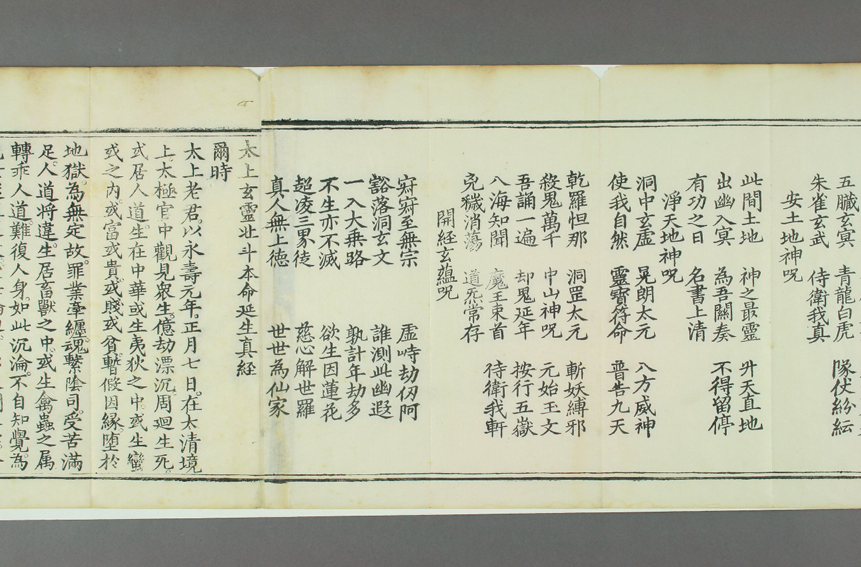 五臟玄冥 青龍白虎 隊伏紛紜
朱雀玄武 侍衛我真
安土地神呪
此間土地 神之最靈 升天直地
出幽入冥 為吾關奏 不得留停
有功之日 名書上清
淨天地神呪
洞中玄虛 晃朗太元 八方威神
使我自然 靈寶符命 普告九天
乾羅怛那 洞罡太元 斬妖縛邪
殺鬼萬千 中山神呪 元始玉文
吾誦一遍 却鬼延年 按行五嶽
八海知聞 魔王束首 待衛我軒
兇穢消蕩 道炁常存
開經玄蘊呪
寂寂至無宗 虛峙劫仞阿
豁落洞玄文 誰測此幽遐
一入大乗路 孰計年劫多
不生亦不滅 欲生因蓮花
超凌三界徒 慈心解世羅
真人無上德 世世為仙家
太上玄靈北斗本命延生真經
爾時
太上老君以永壽元年正月七日在太清境
上太極宫中觀見衆生億劫漂沉周迴生死
或居人道生在中華或生夷狄之中或生蠻
戎之内或富或貴或賤或貧暫假因縁墮於
地獄為無定故罪業牽纏魂繫陰司受苦滿
足人道將違生居畜獸之中或生禽蟲之属
轉乖人道難復人身如此沉淪不自知覺為